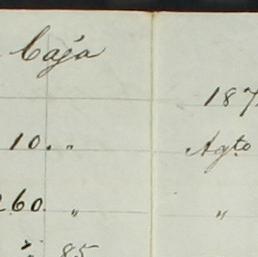 Caja
187
10. "
Agto
260. "
"
85